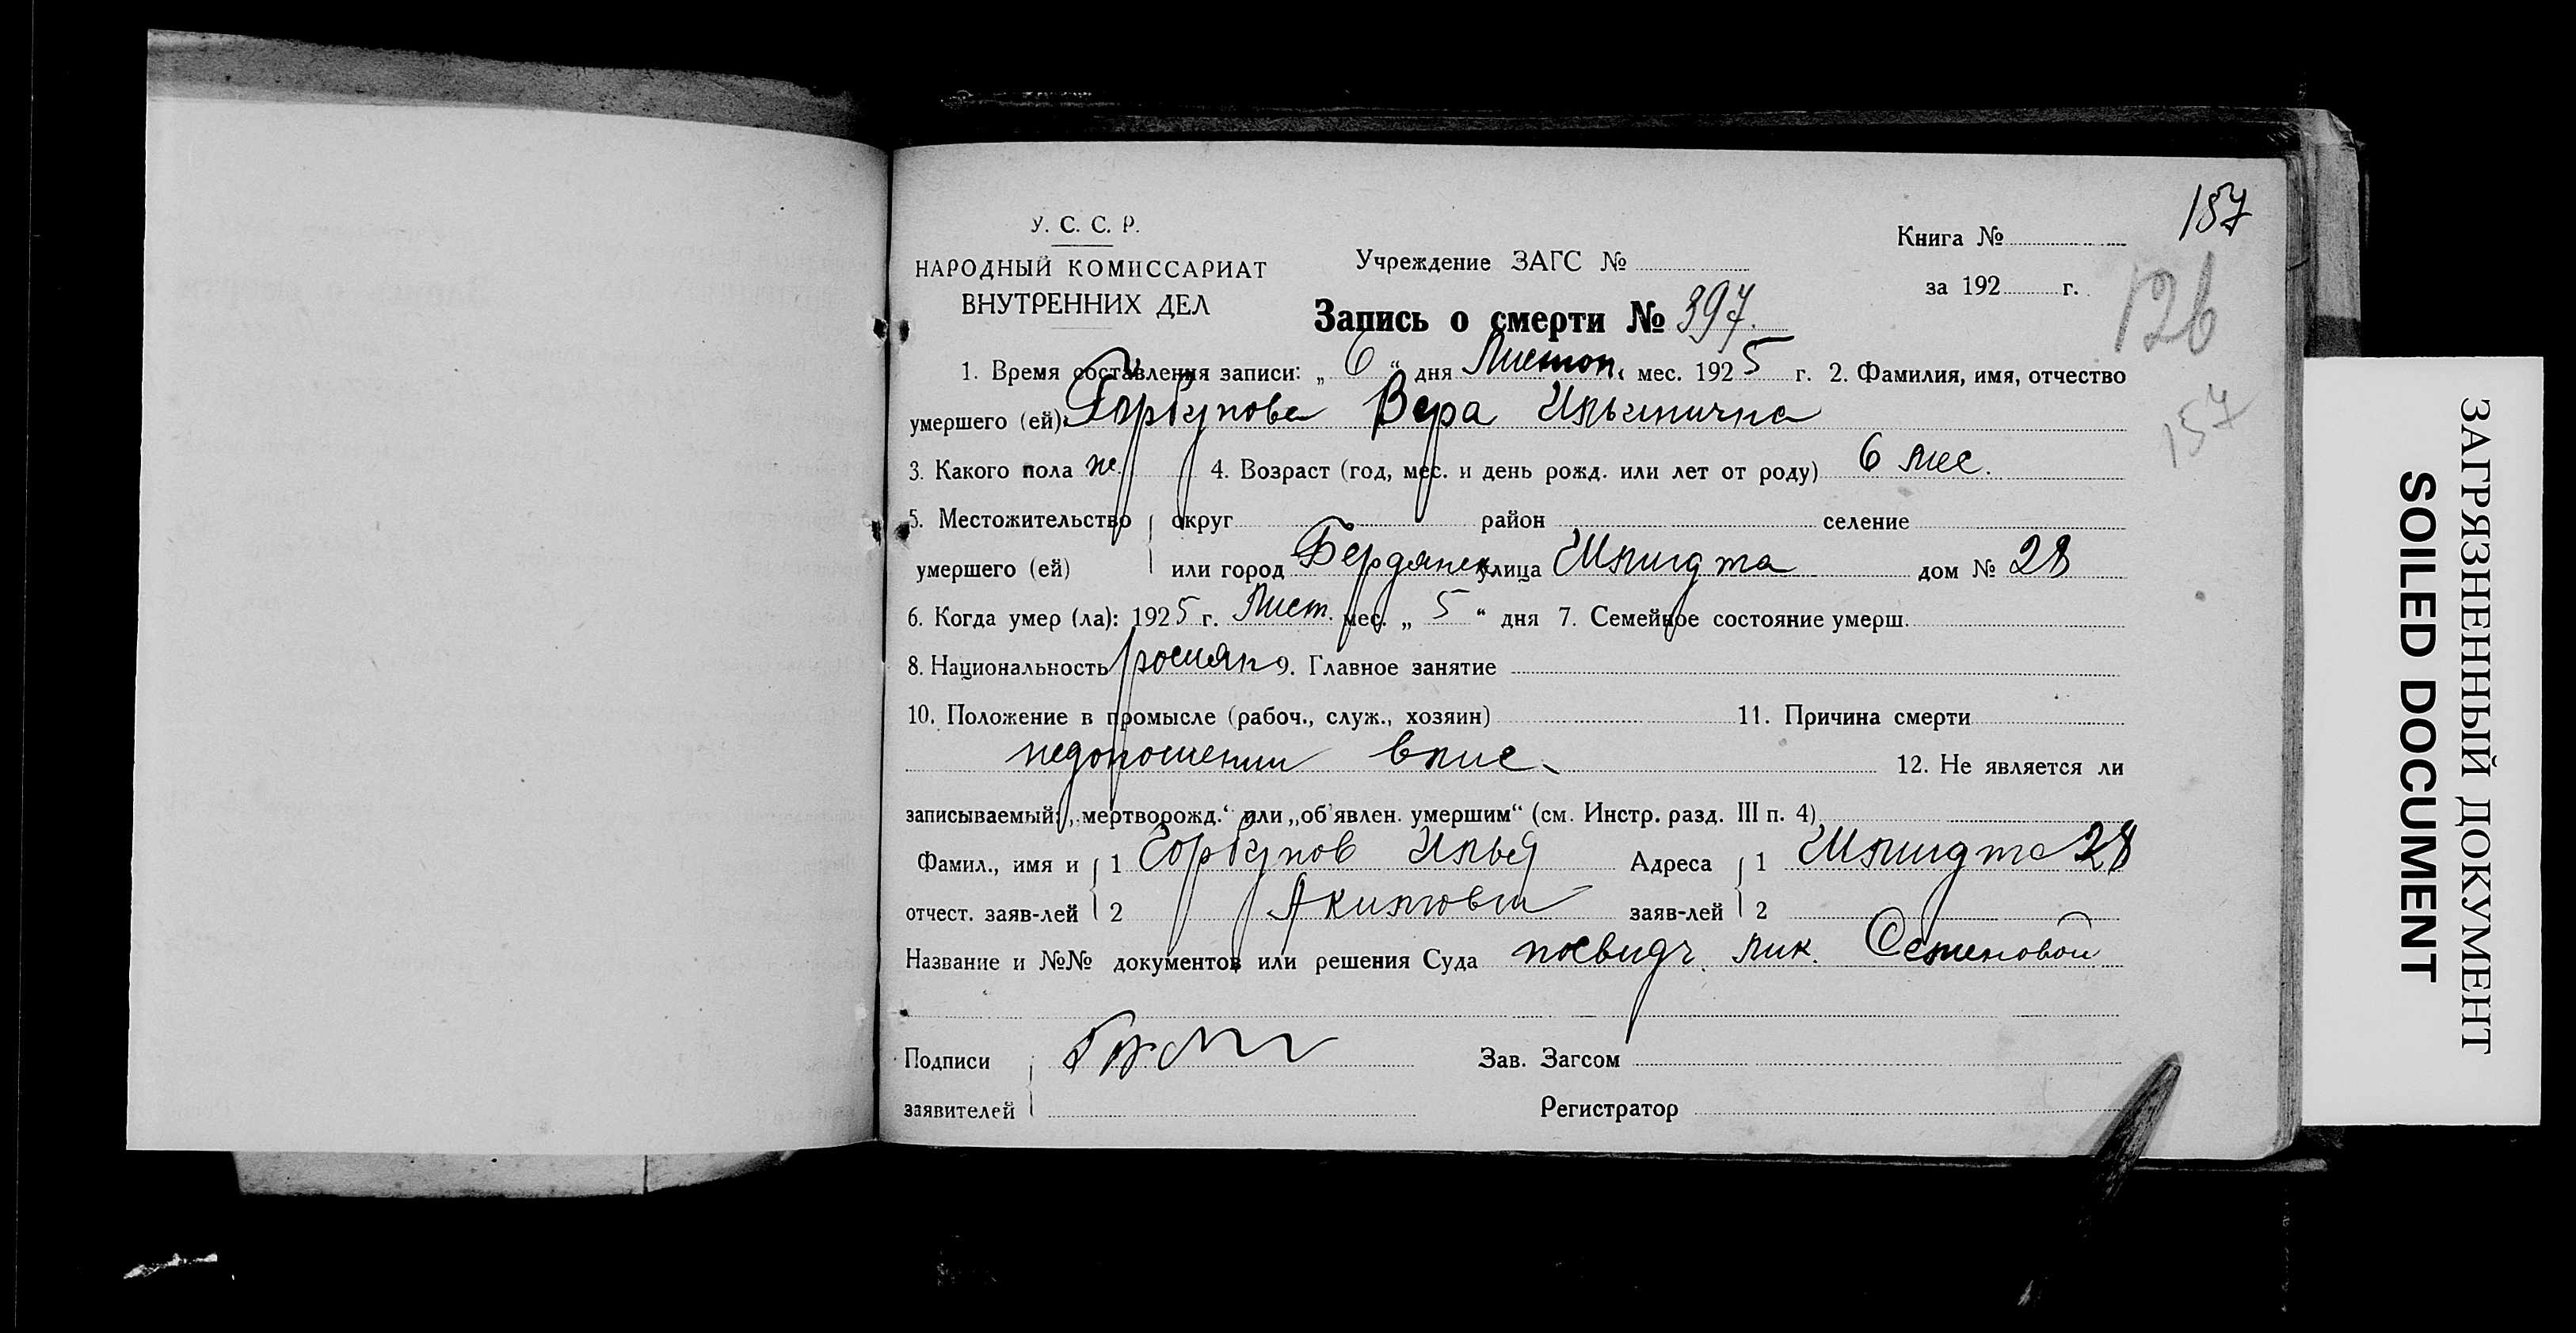 У. С. С. Р.
НАРОДНЫЙ КОМИССАРИАТ
ВНУТРЕННИХ ДЕЛ
Учреждение ЗАГС №
Книга №
за 192 г.
157
126
157
Запись о смерти № 397.
1. Время составления записи: „ 6 “ дня Листоп. мес. 1925 г. 2. Фамилия, имя, отчество
умершего (ей): Горбунова Вера Ильинична
3. Какого пола ж. 4. Возраст (год, мес. и день рожд. или лет от роду) 6 мес.
5. Местожительство округ район селение
умершего (ей) или город Бердянск улица Шмидта дом № 28
6. Когда умер (ла): 1925 г. Лист. мес. „ 5 “ дня 7. Семейное состояние умерш.
8. Национальность росиян 9. Главное занятие
10. Положение в промысле (рабоч., служ., хозяин) 11. Причина смерти
12. Не является ли
записываемый: „мертворожд.“ или „об'явлен. умершим“ (см. Инстр. разд. III п. 4)
Фамил., имя и 1 Горбунов Илья Адреса 1 Шмидта 28
отчест. заяв-лей 2 Акимович заяв-лей 2
Название и №№ документов или решения Суда посвидч. лик. Семеновой
Подписи Зав. Загсом
заявителей Регистратор
ЗАГРЯЗНЕННЫЙ ДОКУМЕНТ
SOILED DOCUMENT